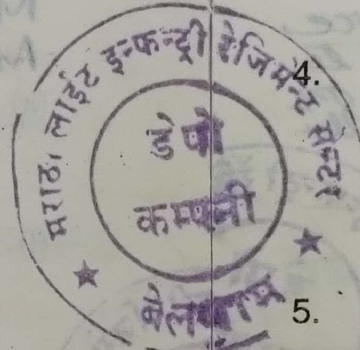 मराठा लाईट इन्फन्ट्री रेजिमेन्ट सेन्टर
डेपो
कम्पनी
बेलगाम
4.
5.